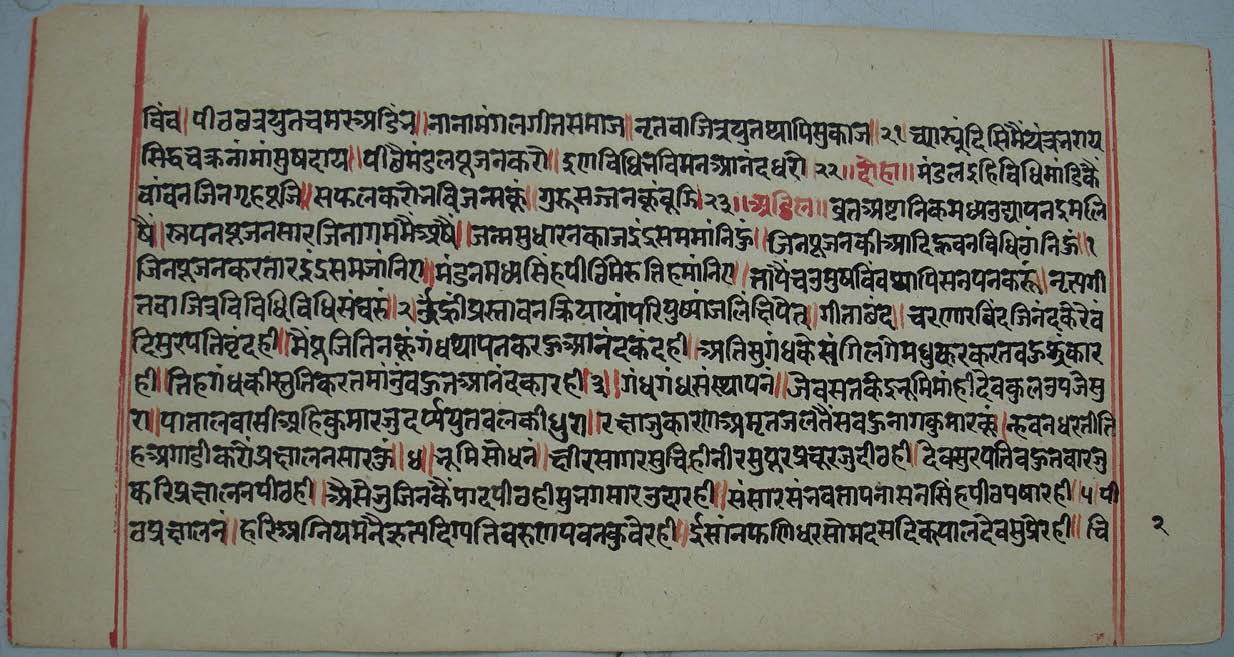 बिंब॥ पीठ छत्रयुत चमर अखंडित॥ नाना मंगल गीत समाज॥ नृत वाजित्र युत थापि सुकाज॥ २१ च्यारूं दिसि मैं यंत्र नराय
सिद्धचक्र नांमां सुषदाय॥ पीछै मंडल पूजन करौ॥ इणविधि भवि मन आनंद धरौ २२॥ दोहा॥ मंडल इहि विधि मांडिकैं
वांचन जिन गृह पूजि॥ सफल करो भवि जन्मकूं॥ गुरु सज्जन कूं बूजि २३॥ अडिल॥ व्रत अष्टानिक मध्य उद्यापन इम लि
षै॥ स्नपन पूजन सार जिनागम मैं अषै॥ जन्म सुधारन काज इंद्र सम मांनिहूं॥ जिन पूजन की आदि न्हवन विधि ठांनिहूं॥ १
जिन पूजन करतार इंद्र सम जांनिए॥ मंडन मध्य सिंहपीठ मेरु तिह मांनिए॥ तापै चतुमुष बिंब थापि सनपन करूं॥ नृत्य गी
त वाजित्र विविधि विधि संचरूं॥ २ ॐ ह्रीं प्रस्तावन क्रियायां परिपुष्पांजलिं क्षिपेत्॥ गीता छंद॥ चरणारविंद जिनंद केरे वं
दि सुरपति वृंद ही॥ मैं पूजि तिनकूं गंध थापन करहु आनंद कंद ही॥ अति सुगंध के संगि लगे मधुकर करत बहु झंकार
ही॥ तिह गंध की स्तुति करत मांनूं बहुत आनंदकार ही॥ ३॥ गंध गंध संस्थापनं॥ जे वसत कंद भूमि मांही देव कुल उपजे सु
रा॥ पाताल वासी अहिकुमार जु दर्प्प युत बल की धुरा॥ रक्षा जु कारण अमृत जल तैं सब हु नागकुमार कूं॥ न्हवन धरती ति
ह अगाडी करौं प्रक्षालन सार कूं॥ ४॥ भूमि सोधनं॥ क्षीरसागर सुचि ही नीर सुपूर प्रचूर जु दीव ही॥ देव सुरपति बहुत वार जु
करि प्रक्षालन पीठ ही॥ अैसै जु जिन कैं पाद पीठ ही सुभग सार उदार ही॥ संसार संभव ताप नासन सिंहपीठ पषार ही॥ ५ पी
ठ प्रक्षालनं॥ हरि अग्नि यम नैरुत्य दिगपति वरुण पवन कुवेर ही॥ ईसांन फणिधर सोम दस दिकपाल देव सुप्रेर ही॥ वि
२